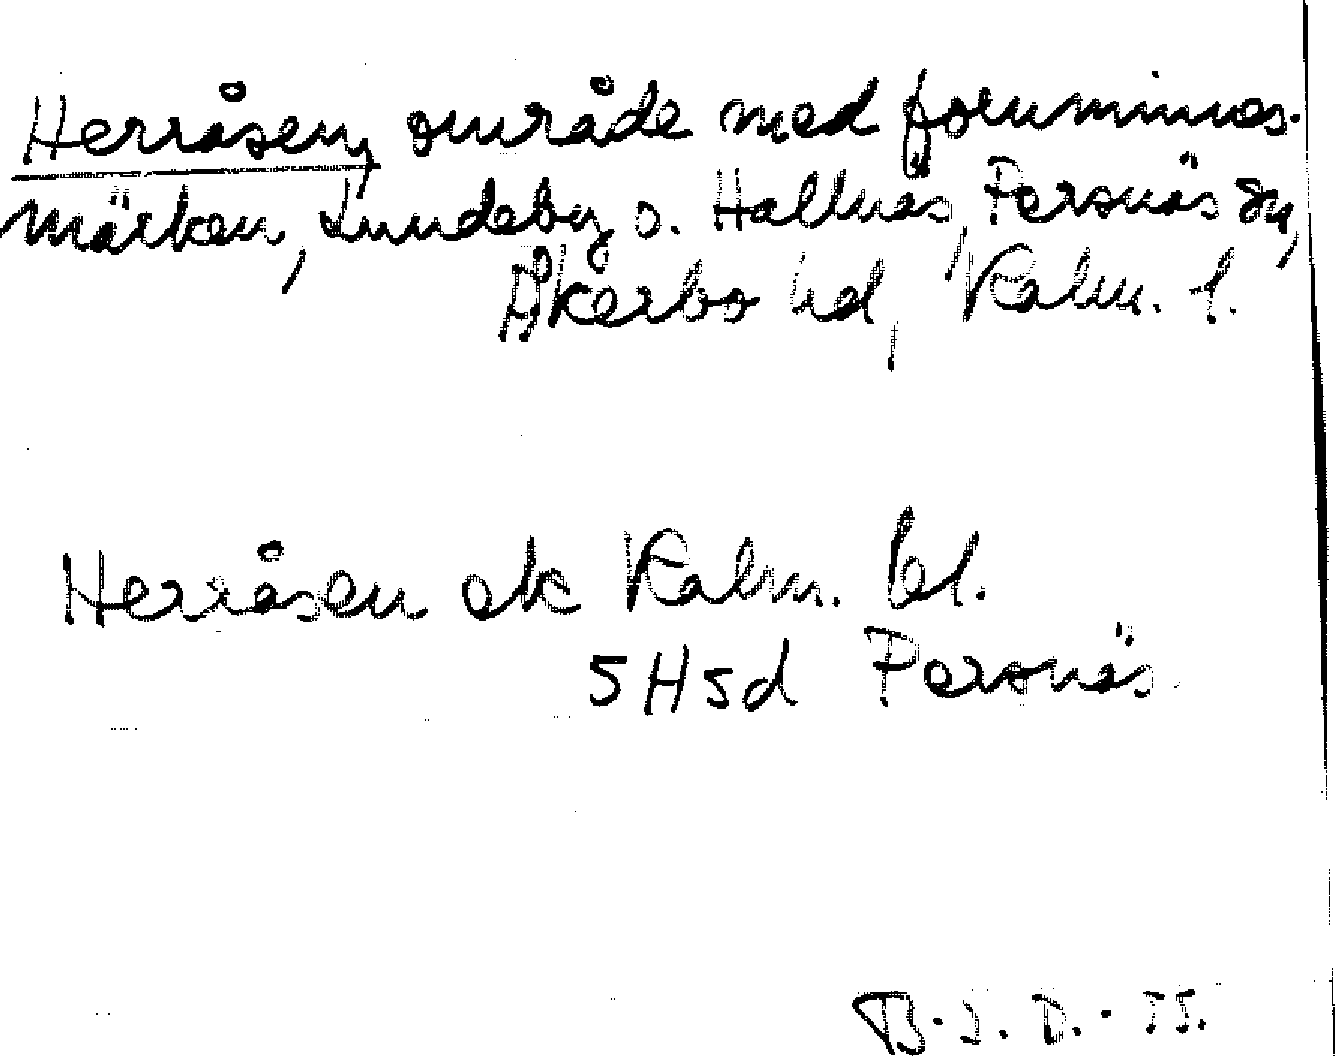 Herråsen, område med fornminnes-
märken, Lundeby o. Hallnäs, Persnäs sn,
Åkerbo hd, Kalm. l.
Herråsen ek Kalm. bl.
5H5d Persnäs
B. J. D. - 55.